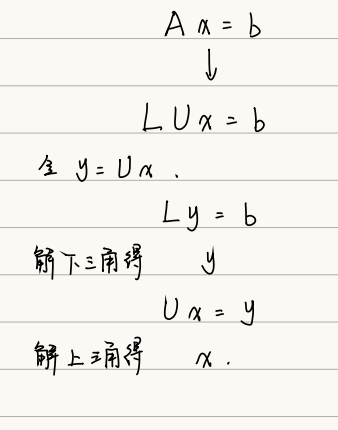 Ax = b
↓
LUx = b
令 y = Ux .
Ly = b
解下三角得 y
Ux = y
解上三角得 x .